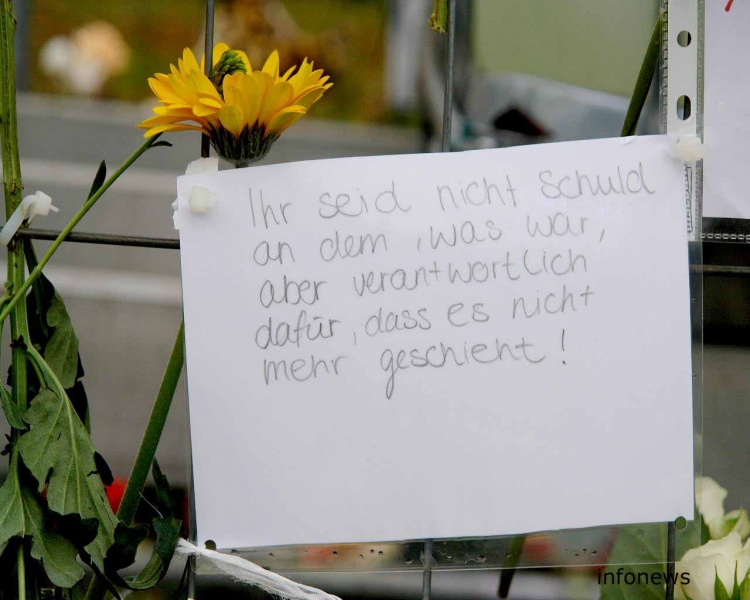 Ihr seid nicht schuld
an dem, was war,
aber verantwortlich
dafür, dass es nicht
mehr geschieht!
infonews